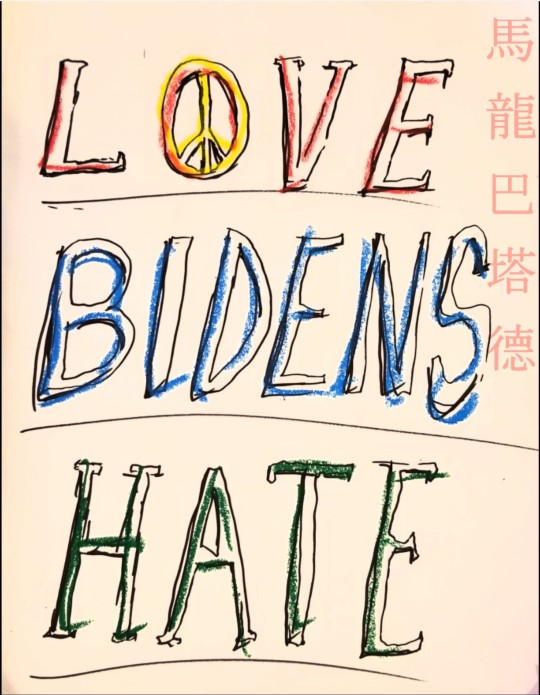 LOVE
BIDENS
HATE
馬龍巴塔德